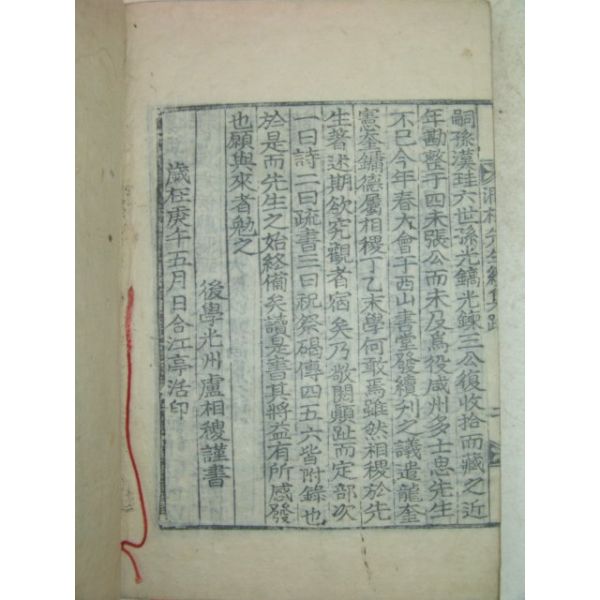 嗣孫漢珪六世孫光鎬光鍊三公復收拾而藏之近
年勘整于四未張公而未及爲役咸州多士忠先生
不已今年春大會于西山書堂發續刊之議遣龍奎
憲奎鏞德屬相稷丁乙末學何敢焉雖然相稷於先
生著述期欲究觀者宿矣乃敬閱顚趾而定部次
一曰詩二曰疏書三曰祝祭碣傳四五六皆附錄也
於是而先生之始終備矣讀是書其將益有所感發
也願與來者勉之
後學光州盧相稷謹書
歲在庚午五月日合江亭活印
先生續集跋